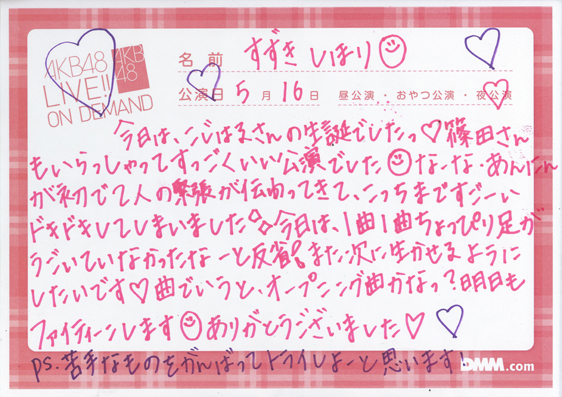 AKB48
LIVE!!
ON DEMAND
AKB
48
名前 すずきしほり
公演日 5月16日 昼公演・おやつ公演・夜公演
今日は、こじはるさんの生誕でしたっ♡篠田さん
もいらっしゃってすっごくいい公演でした☺なーな・あんにん
が初で2人の緊張が伝わってきて、こっちまですごーい
ドキドキしてしまいました 今日は、1曲1曲ちょっぴり足が
うごいていなかったなーと反省! また次に生かせるように
したいです♡曲でいうと、オープニング曲かなっ?明日も
ファイティーンします☺ありがとうございました♡
ps.苦手なものをがんばってトライしよーと思います!
DMM.com